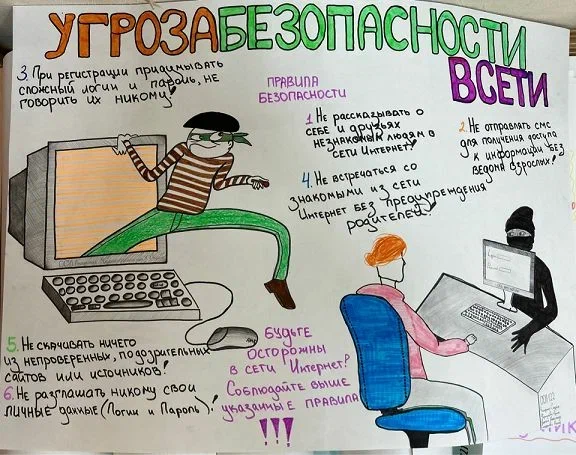 УГРОЗА БЕЗОПАСНОСТИ
В СЕТИ
ПРАВИЛА
БЕЗОПАСНОСТИ
1. Не рассказывать о
себе и друзьях
незнакомым людям в
сети Интернет!
2. Не отправлять смс
для получения доступа
к информации без
ведома взрослых!
3. При регистрации придумывать
сложный логин и пароль, не
говорить их никому!
4. Не встречаться со
знакомыми из сети
Интернет без предупреждения
родителей!
5. Не скачивать ничего
из непроверенных, подозрительных
сайтов или источников!
6. Не разглашать никому свои
личные данные (Логин и Пароль)!
Будьте
осторожны
в сети Интернет!
Соблюдайте выше
указанные правила
!!!